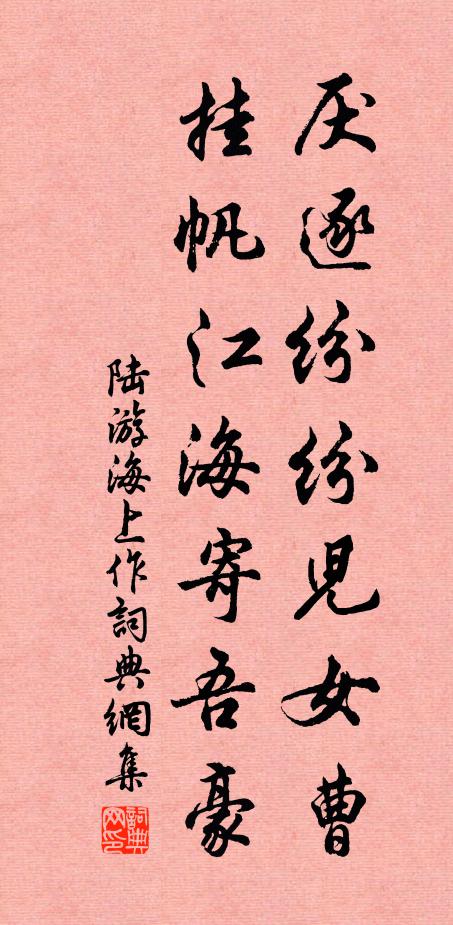 厌逐纷纷児女曹
挂帆江海寄吾豪
陆游海上作詞典網集
詞典网印